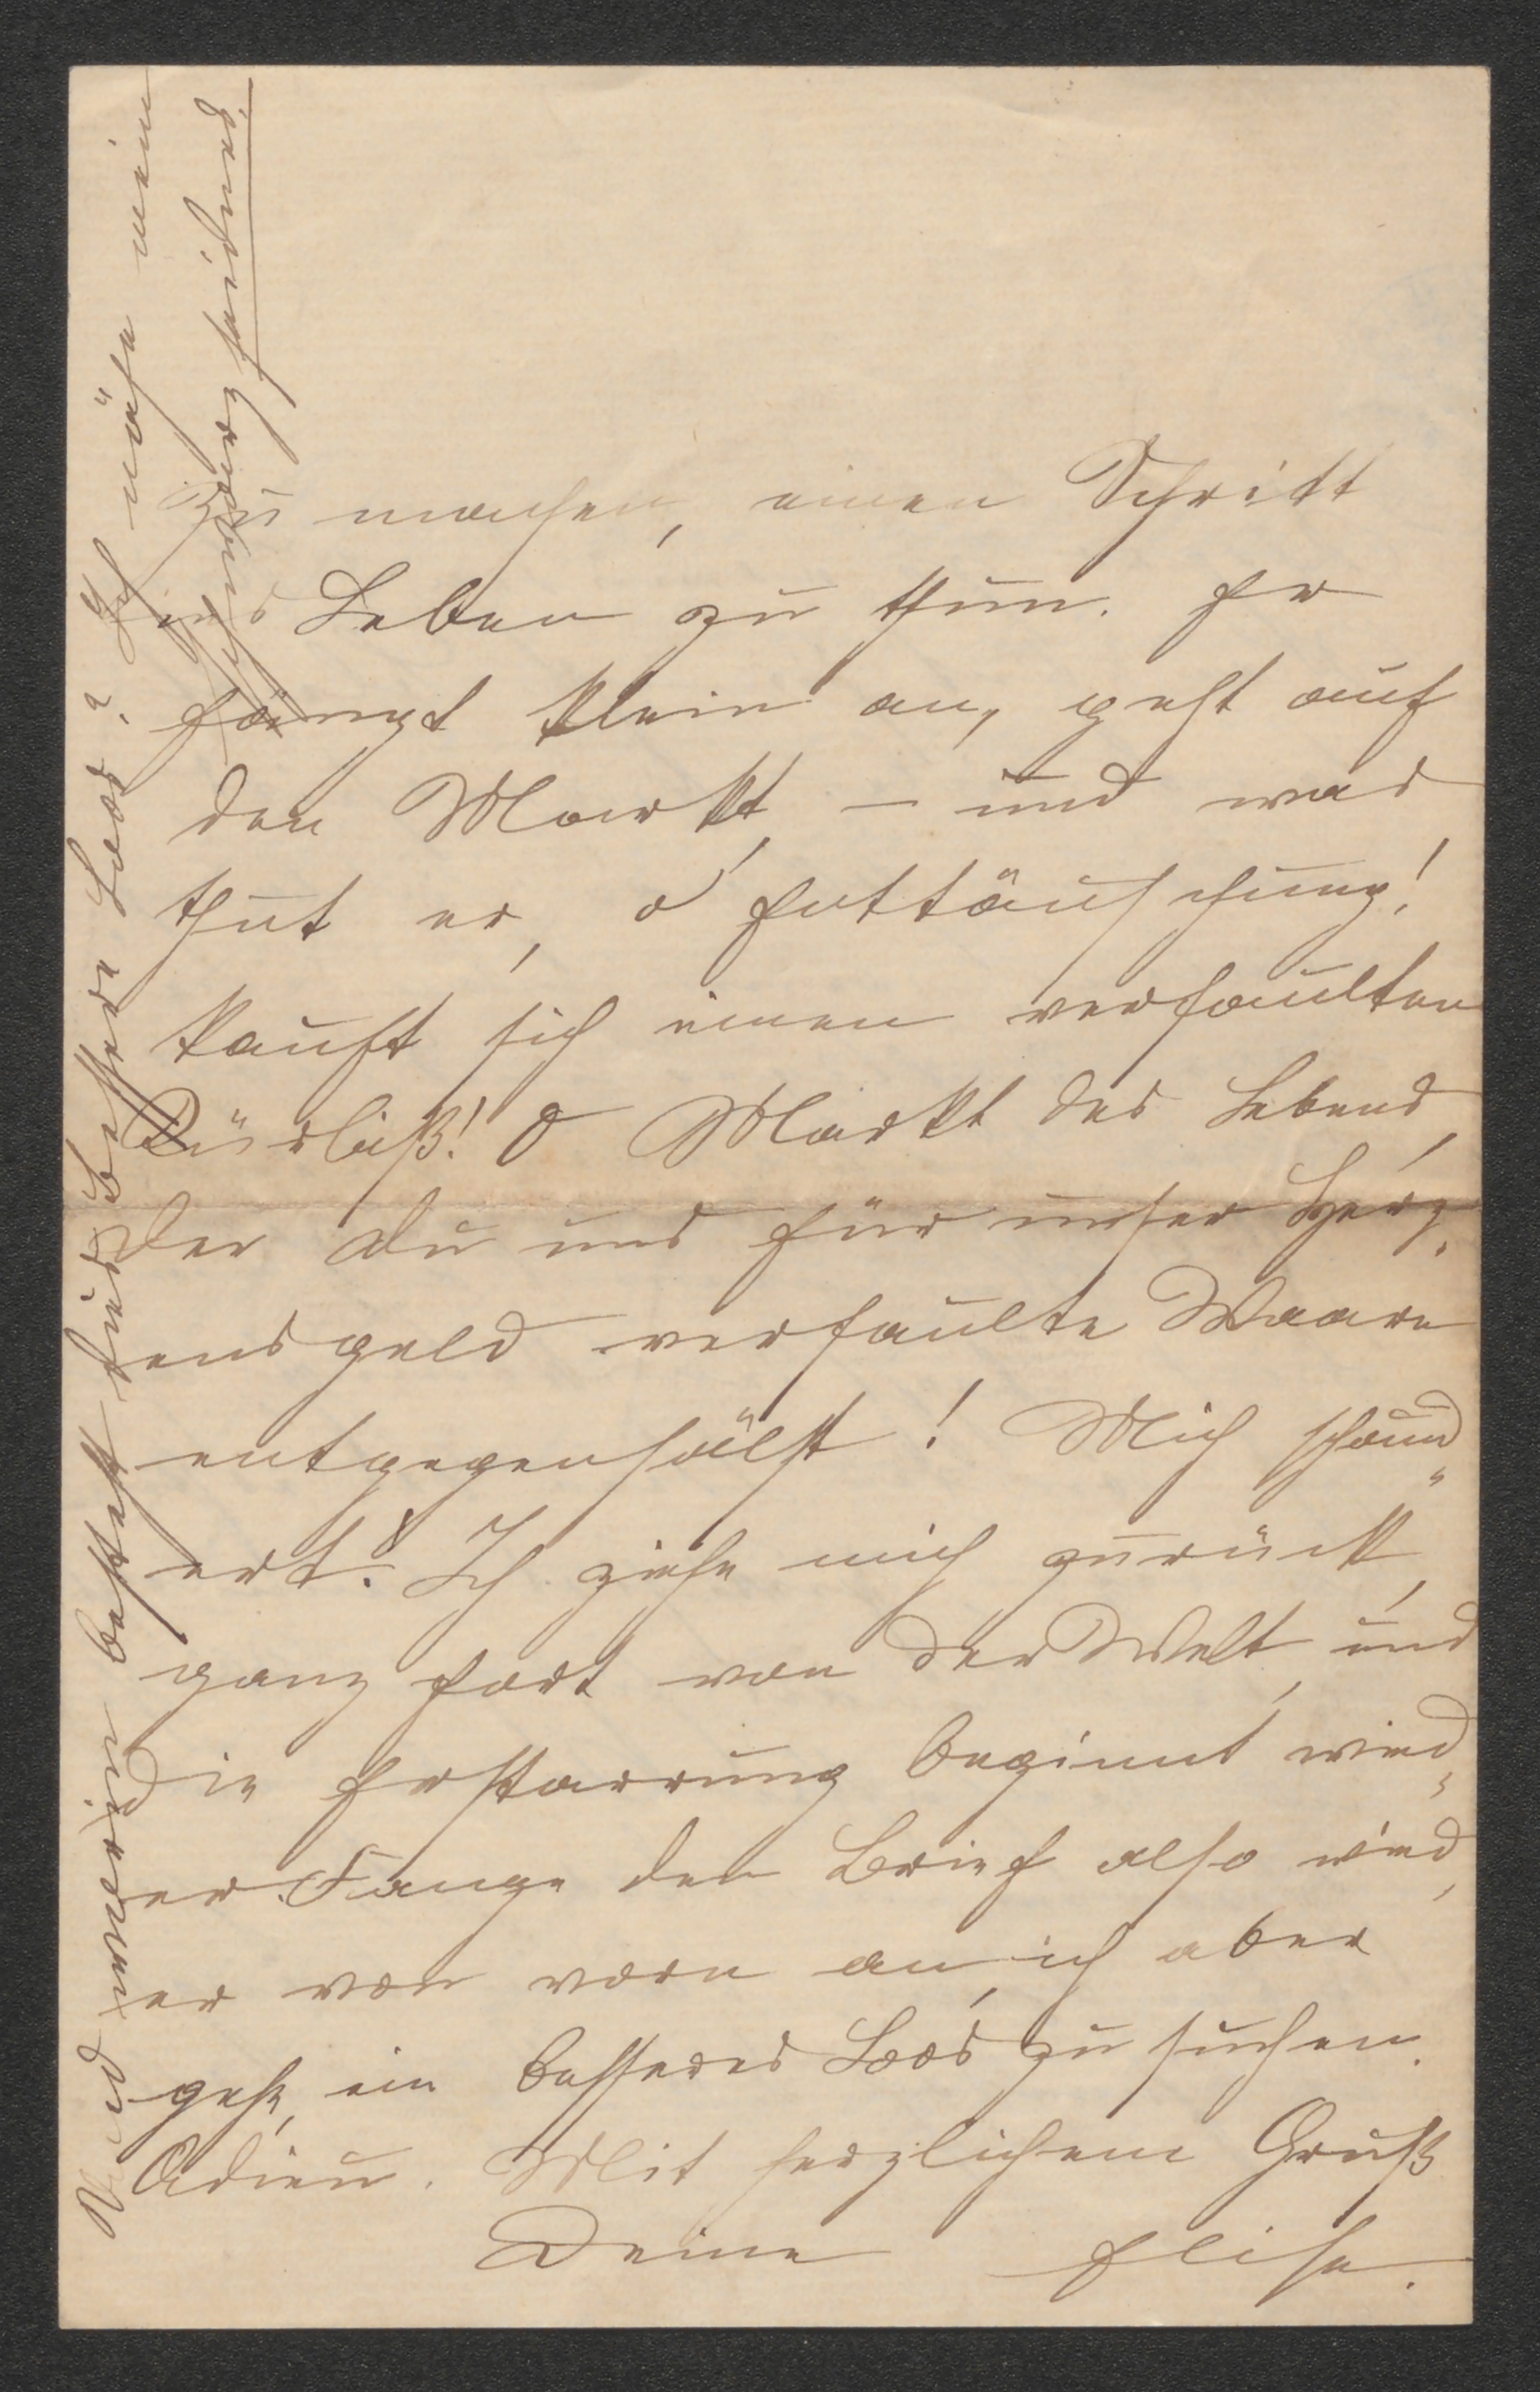 zu machen, einen Schritt
ins Leben zu thun. Er
fängt klein an, geht auf
den Markt, – und was
thut er, o Enttäuschung!
kauft sich einen verfaulten
Kürbiß! O Markt des Lebens,
der du uns für unser Herz-
ensgeld verfaulte Waare
entgegenhälst! Mich schaud-
ert! Ich ziehe mich zurück,
ganz fort von der Welt, und
die Erstarrung beginnt wied-
er. Fange den Brief also wied-
er von vorn an, ich aber
gehe, ein besseres Loos zu suchen.
Adieu. Mit herzlichem Gruß
Deine Elise.
Und worin besteht dies bessere Loos? Ich nähe mein
schwarz seidenes.